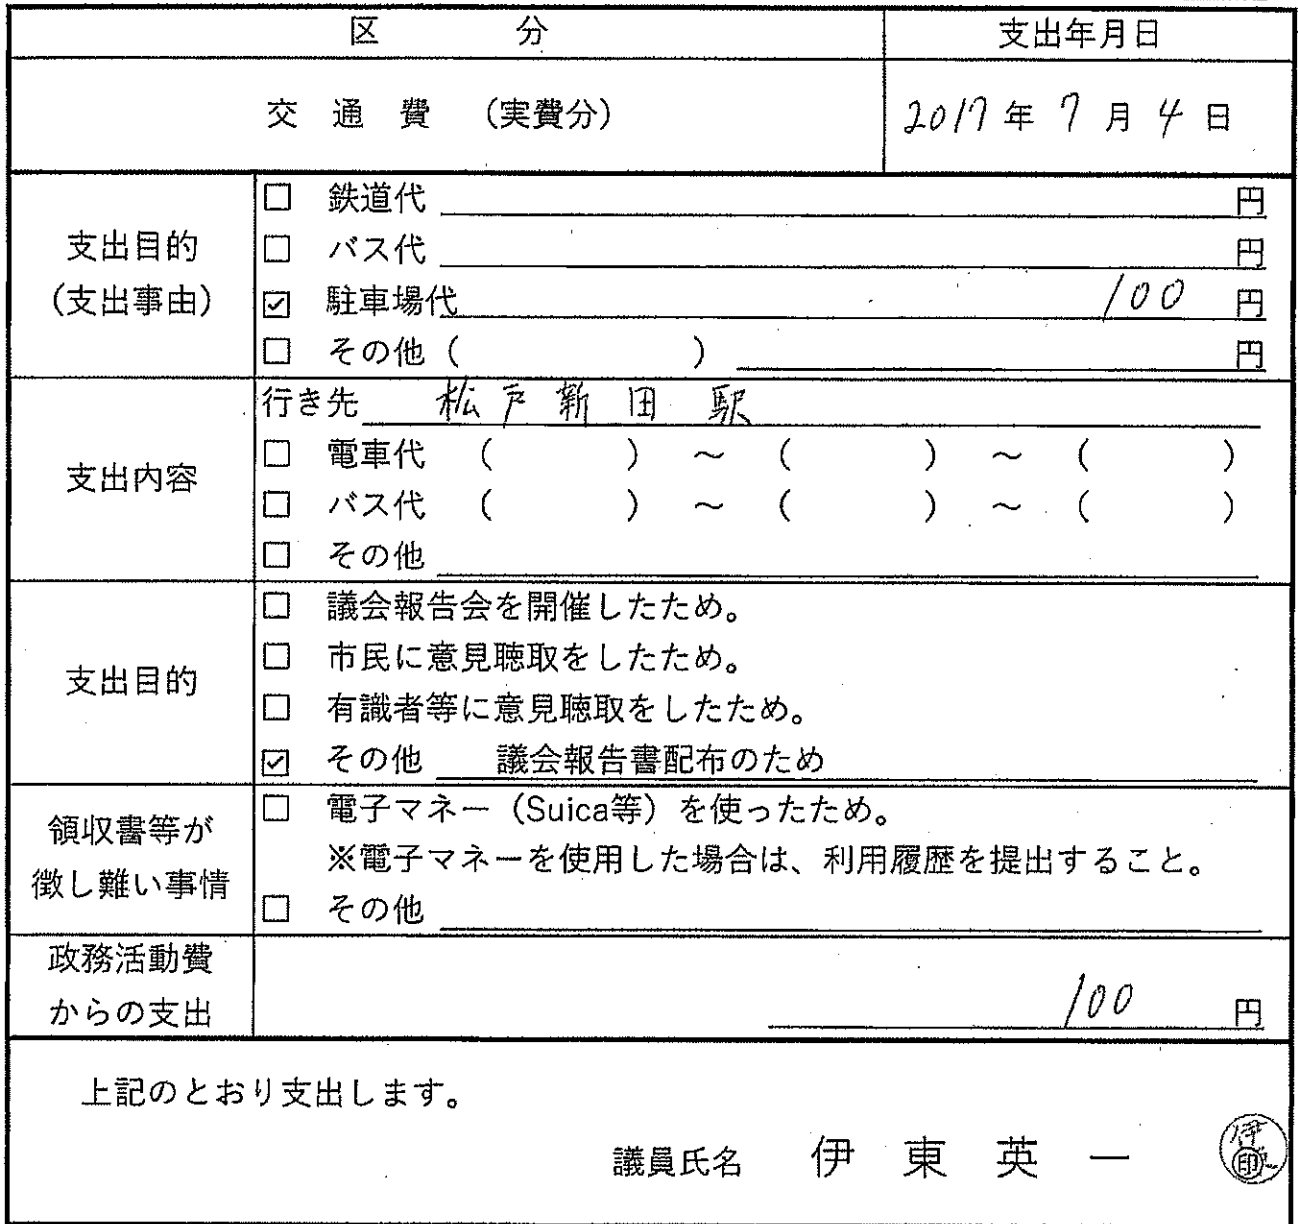 区 分 支出年月日
交通費 (実費分) 2017年7月4日
支出目的
(支出事由)
□ 鉄道代 円
□ バス代 円
☑ 駐車場代 100 円
□ その他 ( ) 円
支出内容
行き先 松戸新田駅
□ 電車代 ( ) ～ ( ) ～ ( )
□ バス代 ( ) ～ ( ) ～ ( )
□ その他
支出目的
□ 議会報告会を開催したため。
□ 市民に意見聴取をしたため。
□ 有識者等に意見聴取をしたため。
☑ その他 議会報告書配布のため
領収書等が
徴し難い事情
□ 電子マネー（Suica等）を使ったため。
※電子マネーを使用した場合は、利用履歴を提出すること。
□ その他
政務活動費
からの支出
100 円
上記のとおり支出します。
議員氏名 伊東英一 印